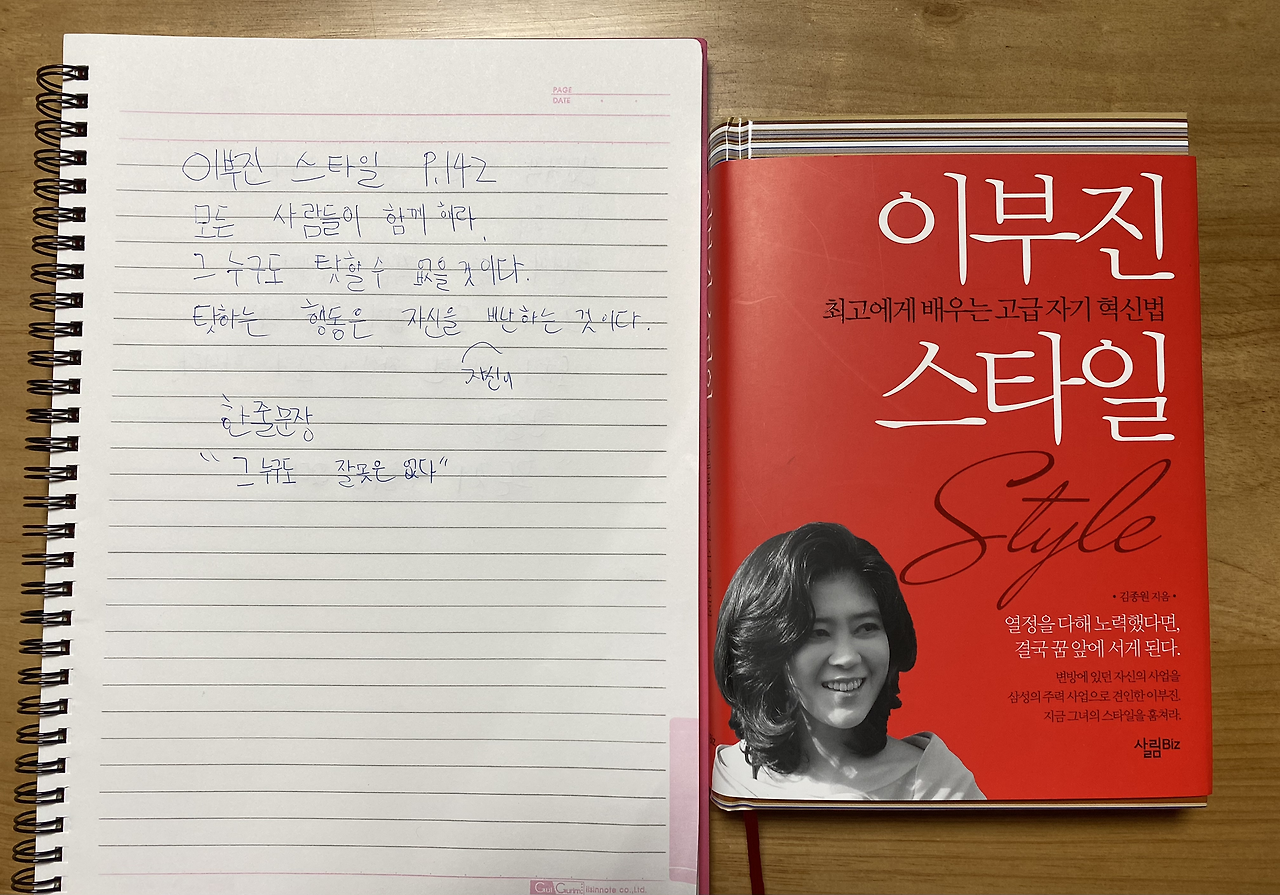 PAGE
DATE
이부진 스타일 P.142
모든 사람들이 함께 해라.
그 누구도 탓할 수 없을 것이다.
탓하는 행동은 자신을 비난하는 것이다.
자신이
한줄문장
“그 누구도 잘못은 없다”
Gut Gurim ilsinnote co.,Ltd.
이부진
최고에게 배우는 고급 자기 혁신법
스타일
Style
• 김종원 지음 •
열정을 다해 노력했다면,
결국 꿈 앞에 서게 된다.
변방에 있던 자신의 사업을
삼성의 주력 사업으로 견인한 이부진.
지금 그녀의 스타일을 훔쳐라.
살림Biz